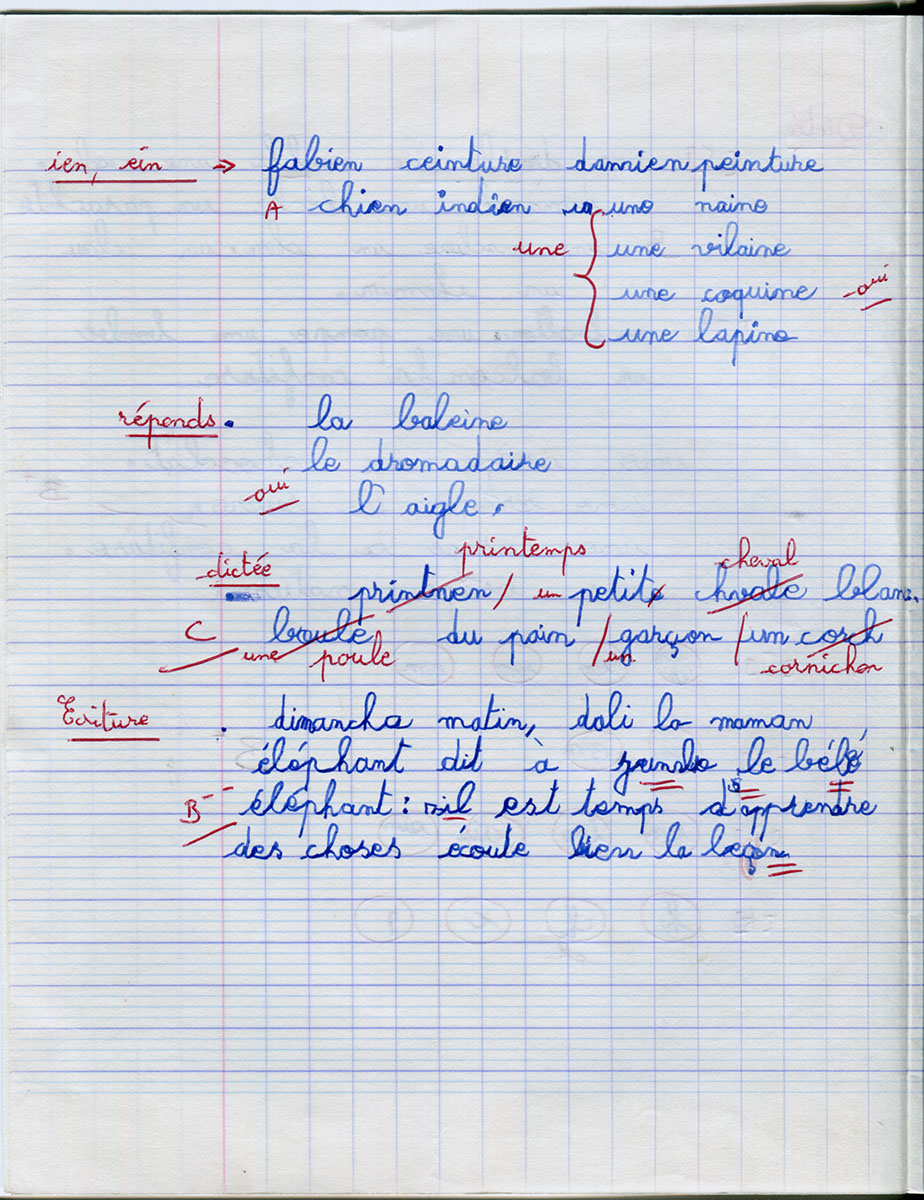 ien, ein → fabien ceinture damien peinture
A chien indien uno naino
une { une vilaine
une coquine oui
une lapino
réponds. la baleine
le dromadaire
oui l'aigle.
printemps cheval
dictée printnen / un petite chvale blanc.
C boule du pain / garçon / un corch
une poule un cornichon
Ecriture . dimancha matin, doli la maman
éléphant dit à le bébé
B-- éléphant: il est temps d'apprendre
des choses écoute bien la leçon